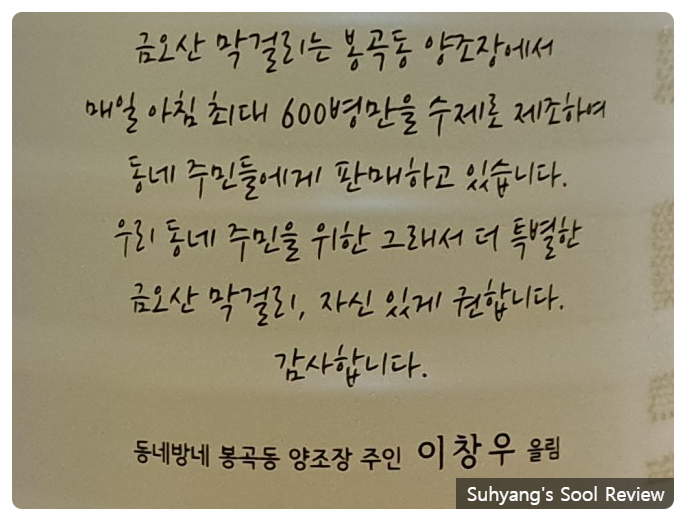 금오산 막걸리는 봉곡동 양조장에서
매일 아침 최대 600병만을 수제로 제조하여
동네 주민들에게 판매하고 있습니다.
우리 동네 주민을 위한 그래서 더 특별한
금오산 막걸리, 자신 있게 권합니다.
감사합니다.
동네방네 봉곡동 양조장 주인 이창우 올림
Suhyang's Sool Review